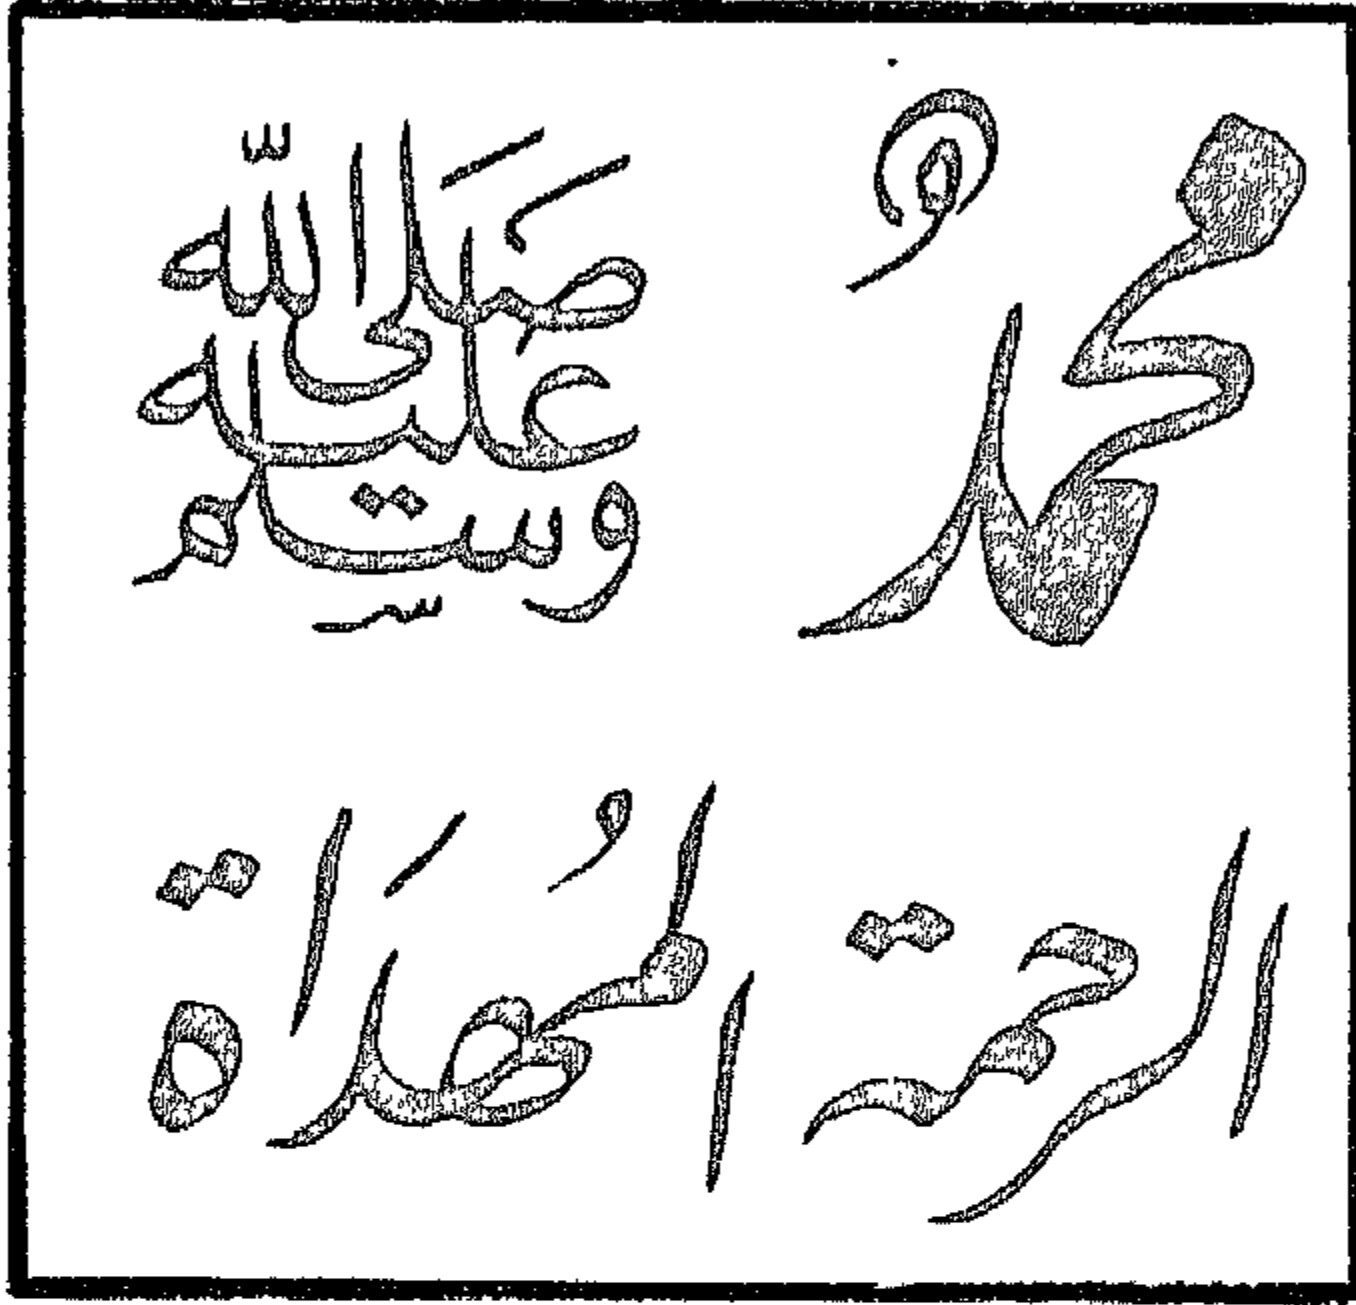 محمدٌ صَلى اللّه عليه وسلم
الرحمة المُهدَاة